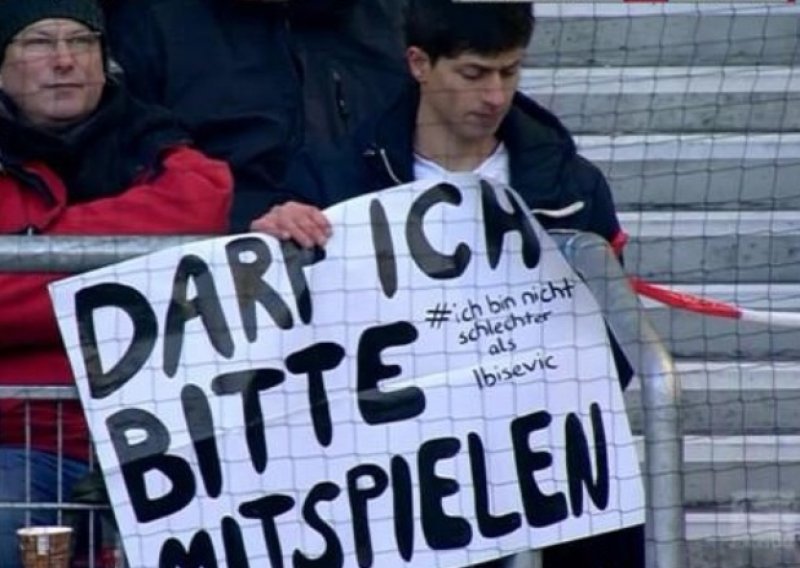 DARF ICH
BITTE
MITSPIELEN
#ich bin nicht
schlechter
als
Ibisevic